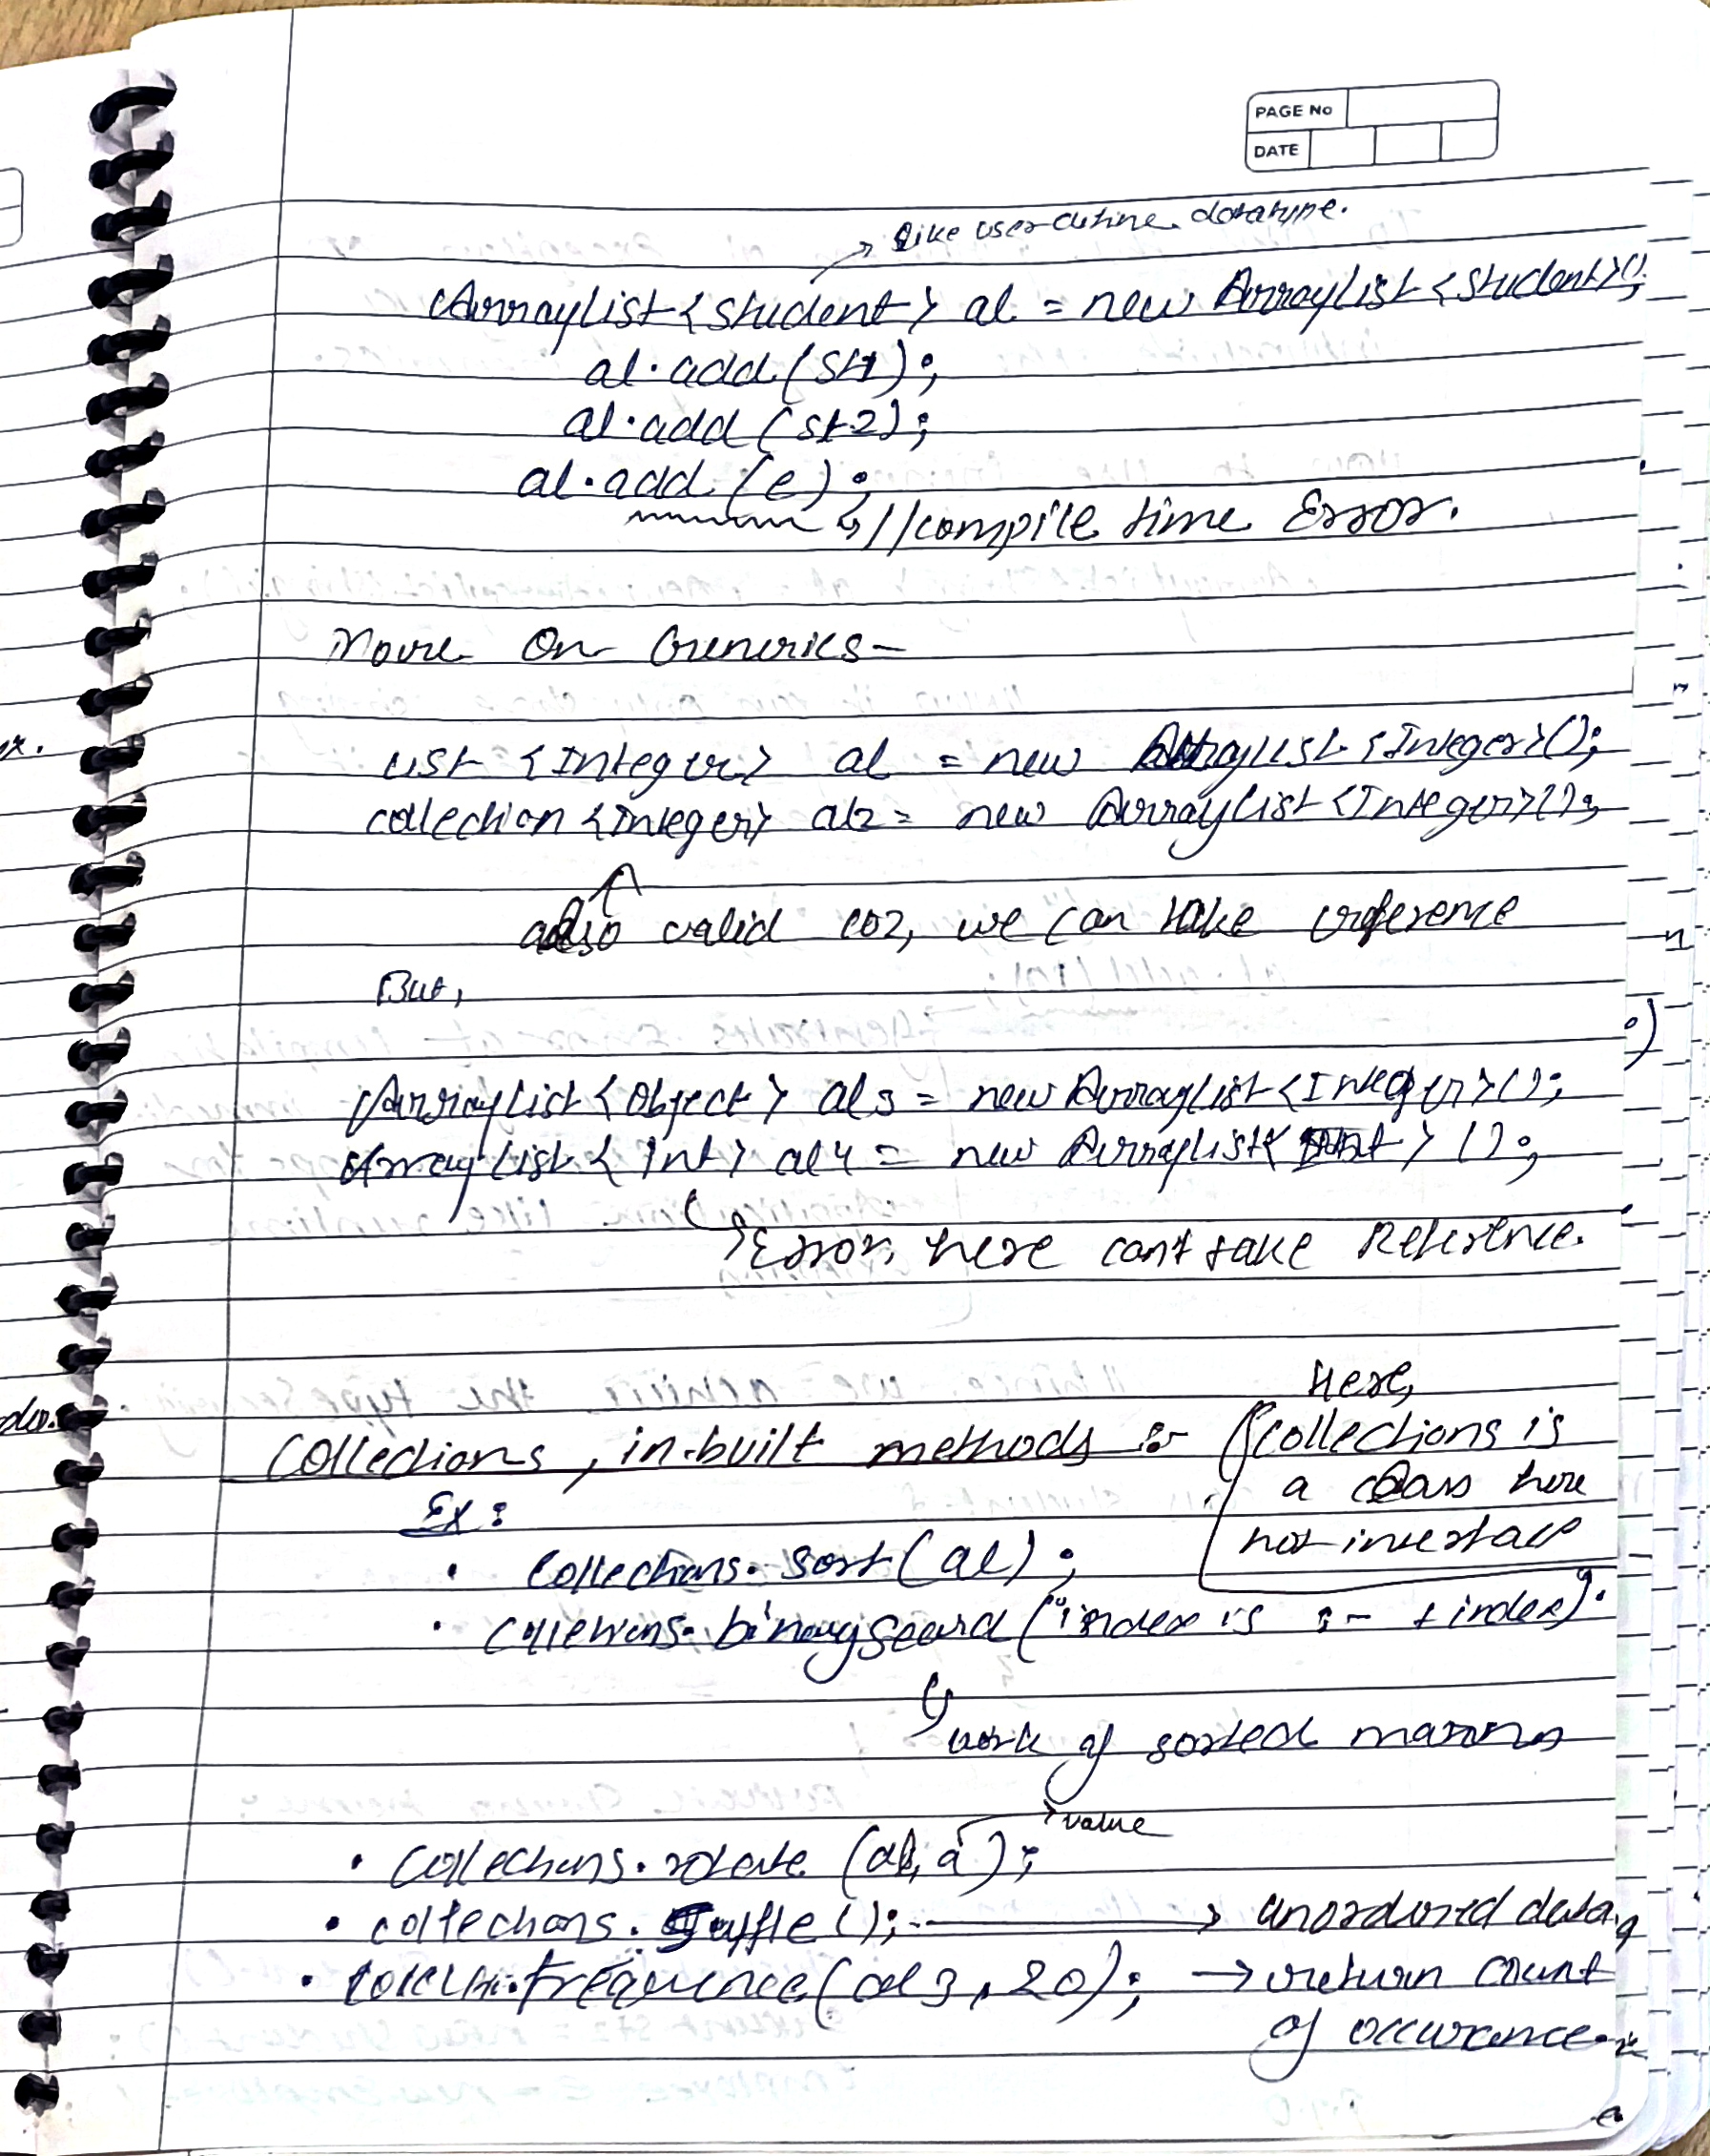 PAGE No
DATE
→ Like user-define datatype.
ArrayList<student> al = new ArrayList<student>();
al.add(st1);
al.add(st2);
al.add(e);
↳ //compile time Error.
More On Generics-
List <Integer> al = new ArrayList<Integer>();
collection <Integer> al2 = new ArrayList<Integer>();
also valid coz, we can take reference
But,
ArrayList<Object> al3 = new ArrayList<Integer>();
ArrayList< int> al4 = new ArrayList< int > ();
↳ Error, here can't take Reference.
Here,
Collections, in-built methods :- (collections is
a class here
not interface
Ex:
• Collections.sort(al);
• Collections.binarysearch("index is :- + index).
↳ work of sorted manner
→ value
• Collections.rotate (al, a);
• collections.suffle(); → unordered data,
• .frequence(al3, 20); → return count
of occurance.